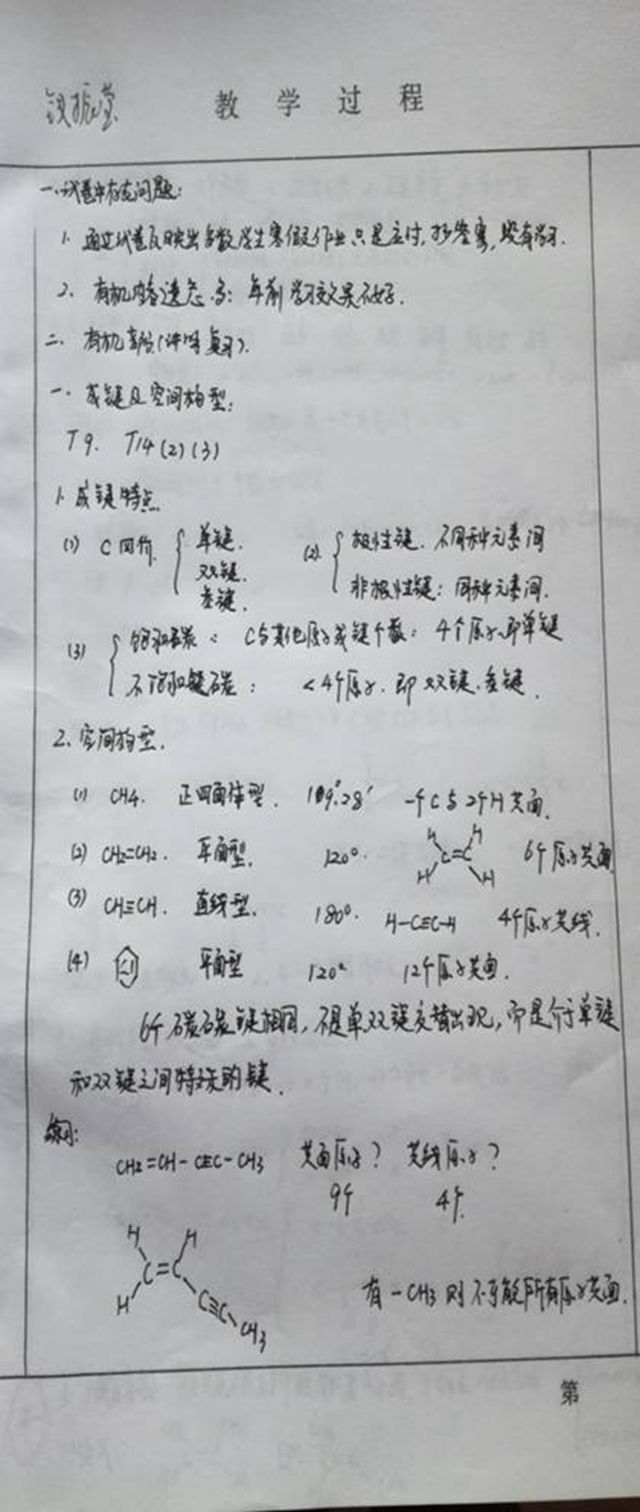 教学过程
一.试卷中存在问题:
1. 通过试卷反映出多数学生寒假作业只是应付,抄答案,没有学习.
2. 有机内容遗忘多;年前学习效果不好.
二. 有机部分(讲评复习).
一. 成键及空间构型:
T9. T14(2)(3)
1. 成键特点.
(1) C四价 { 单键. 双键. 叁键. (2) { 极性键. 不同种元素间 非极性键:同种元素间.
(3) { 饱和碳: C与其他原子成键个数:4个原子,即单键
不饱和键碳: <4个原子.即双键.叁键.
2. 空间构型.
(1) CH4. 正四面体型. 109°28′ 一个C与2个H共面.
(2) CH2=CH2. 平面型. 120°. H H C=C H H 6个原子共面
(3) CH≡CH. 直线型. 180°. H-C≡C-H 4个原子共线.
(4) 平面型 120° 12个原子共面.
6个碳碳键相同,不是单双键交替出现,而是介于单键
和双键之间特殊的键.
练习:
CH2=CH-C≡C-CH3 共面原子? 共线原子?
9个 4个.
H H C=C H C≡C-CH3
有-CH3则不可能所有原子共面.
第